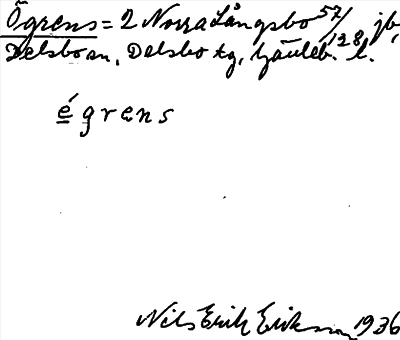 Ögrens = 2 Norra Långsbo 57/128 jb,
Delsbo sn, Delsbo tg, Gävleb. l.
égrens
Nils Erik Erikson 1936